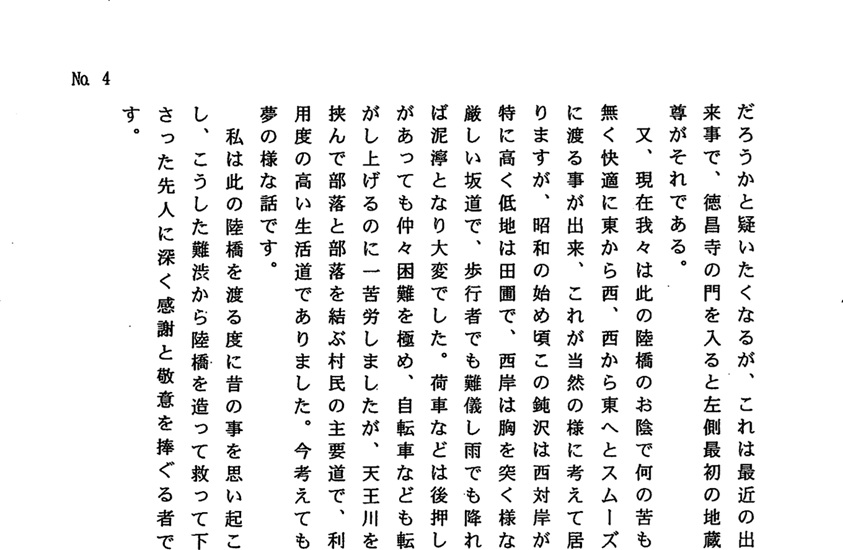 No. 4
だろうかと疑いたくなるが、これは最近の出
来事で、徳昌寺の門を入ると左側最初の地蔵
尊がそれである。
又、現在我々は此の陸橋のお陰で何の苦も
無く快適に東から西、西から東へとスムーズ
に渡る事が出来、これが当然の様に考えて居
りますが、昭和の始め頃この鈍沢は西対岸が
特に高く低地は田圃で、西岸は胸を突く様な
厳しい坂道で、歩行者でも難儀し雨でも降れ
ば泥濘となり大変でした。荷車などは後押し
があっても仲々困難を極め、自転車なども転
がし上げるのに一苦労しましたが、天王川を
挟んで部落と部落を結ぶ村民の主要道で、利
用度の高い生活道でありました。今考えても
夢の様な話です。
私は此の陸橋を渡る度に昔の事を思い起こ
し、こうした難渋から陸橋を造って救って下
さった先人に深く感謝と敬意を捧ぐる者で
す。